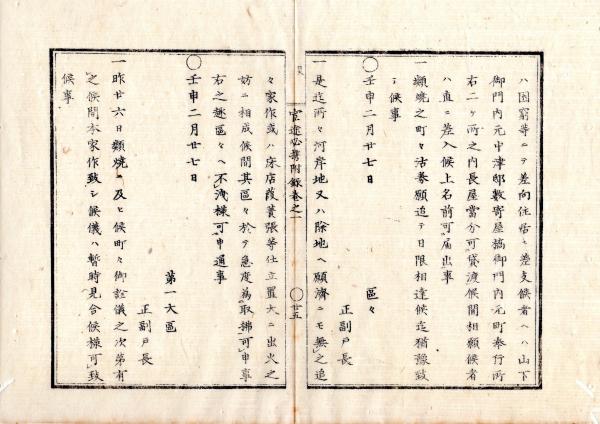 ハ困窮等ニテ差向住居ニ差支候者ヘハ山下
御門内元中津邸數寄屋橋御門内元町奉行所
右二ヶ所之内長屋當分可貸渡候間相願候者
ハ直ニ差入候上名前可届出事
一類燒之町々沽券願追テ日限相達候迄猶豫致
シ候事
〇壬申二月廿七日
區々
正副戸長
一是迄所々河岸地又ハ除地ヘ願濟ニモ無之追
官途必携附録卷之一
〇廿五
々家作或ハ床店葭簀張等仕立置大ニ出火之
妨ニ相成候間其區々於テ急度爲取拂可申事
右之趣區々ヘ不洩様可申通事
〇壬申二月廿七日
第一大區
正副戸長
一昨廿六日類燒ニ及ヒ候町々御詮儀之次第有
之候間本家作致シ候儀ハ暫時見合候様可致
候事